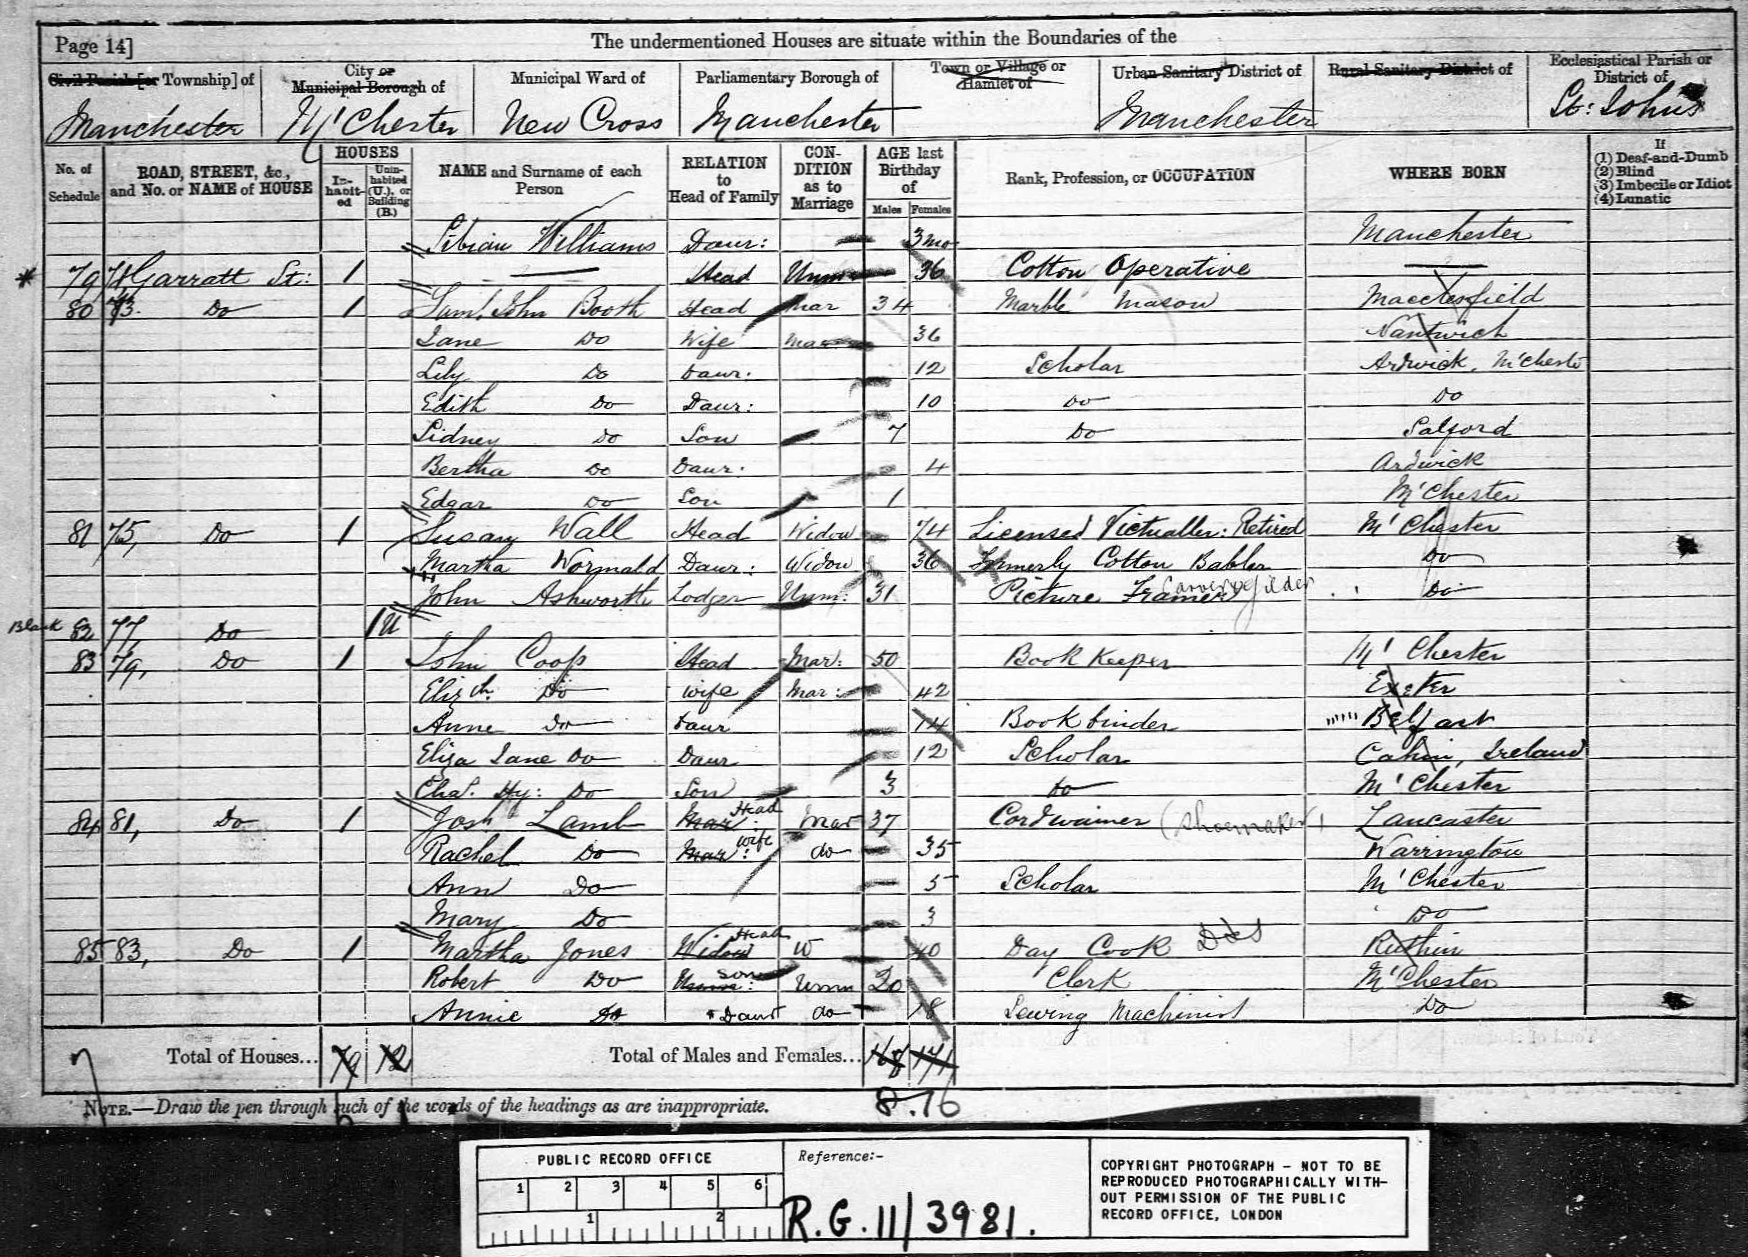 Page 14]
The undermentioned Houses are situate within the Boundaries of the
Civil Parish [or Township] of
City or Municipal Borough of
Municipal Ward of
Parliamentary Borough of
Town or Village or Hamlet of
Urban Sanitary District of
Rural Sanitary District of
Ecclesiastical Parish or District of
Manchester M'Chester New Cross Manchester Manchester St: John's
No. of Schedule
ROAD, STREET, &c., and No. or NAME of HOUSE
HOUSES
In-habit-ed
Unin-habited (U.), or Building (B.)
NAME and Surname of each Person
RELATION to Head of Family
CON-DITION as to Marriage
AGE last Birthday of
Males Females
Rank, Profession, or OCCUPATION
WHERE BORN
If
(1) Deaf-and-Dumb
(2) Blind
(3) Imbecile or Idiot
(4) Lunatic
Williams Daur: 3 mo Manchester
79 71 Garratt St: 1 Head Unm 36 Cotton Operative
80 73. Do 1 Saml. John Booth Head Mar 34 Marble Mason Macclesfield
Jane Do Wife Mar 36 Nantwich
Lily Do Daur. 12 Scholar Ardwick, M'Chester
Edith Do Daur: 10 Do Do
Sidney Do Son 7 Do Salford
Bertha Do Daur. 4 Ardwick
Edgar Do Son 1 M'Chester
81 75, Do 1 Susan Wall Head Widow 74 Licensed Victualler: Retired M'Chester
Martha Wormald Daur: Widow 36 Formerly Cotton Do
John Ashworth Lodger Unm. 31 Picture Framer Carver Gilder Do
Blank 82 77, Do 1U
83 79, Do 1 John Coop Head Mar: 50 Book Keeper M'Chester
Elizth. Do Wife Mar: 42 Exeter
Anne Do Daur 14 Bookbinder Belfast
Eliza Jane Do Daur 12 Scholar Cahir, Ireland
Chas. Hy: Do Son 3 Do M'Chester
84 81, Do 1 Josh Lamb Mar: Head Mar 37 Cordwainer (Shoemaker) Lancaster
Rachel Do Mar: Wife do 35 Warrington
Ann Do 5 Scholar M'Chester
Mary Do 3 Do
85 83, Do 1 Martha Jones Widow Head W 40 Day Cook Ruthin
Robert Do Son Unm 20 Clerk M'Chester
Annie Do Daur do 18 Sewing Machinist Do
Total of Houses...
Total of Males and Females...
8.16
NOTE.—Draw the pen through such of the words of the headings as are inappropriate.
PUBLIC RECORD OFFICE
1 2 3 4 5 6
1 2
Reference:-
R.G. 11/3981.
COPYRIGHT PHOTOGRAPH - NOT TO BE
REPRODUCED PHOTOGRAPHICALLY WITH-
OUT PERMISSION OF THE PUBLIC
RECORD OFFICE, LONDON